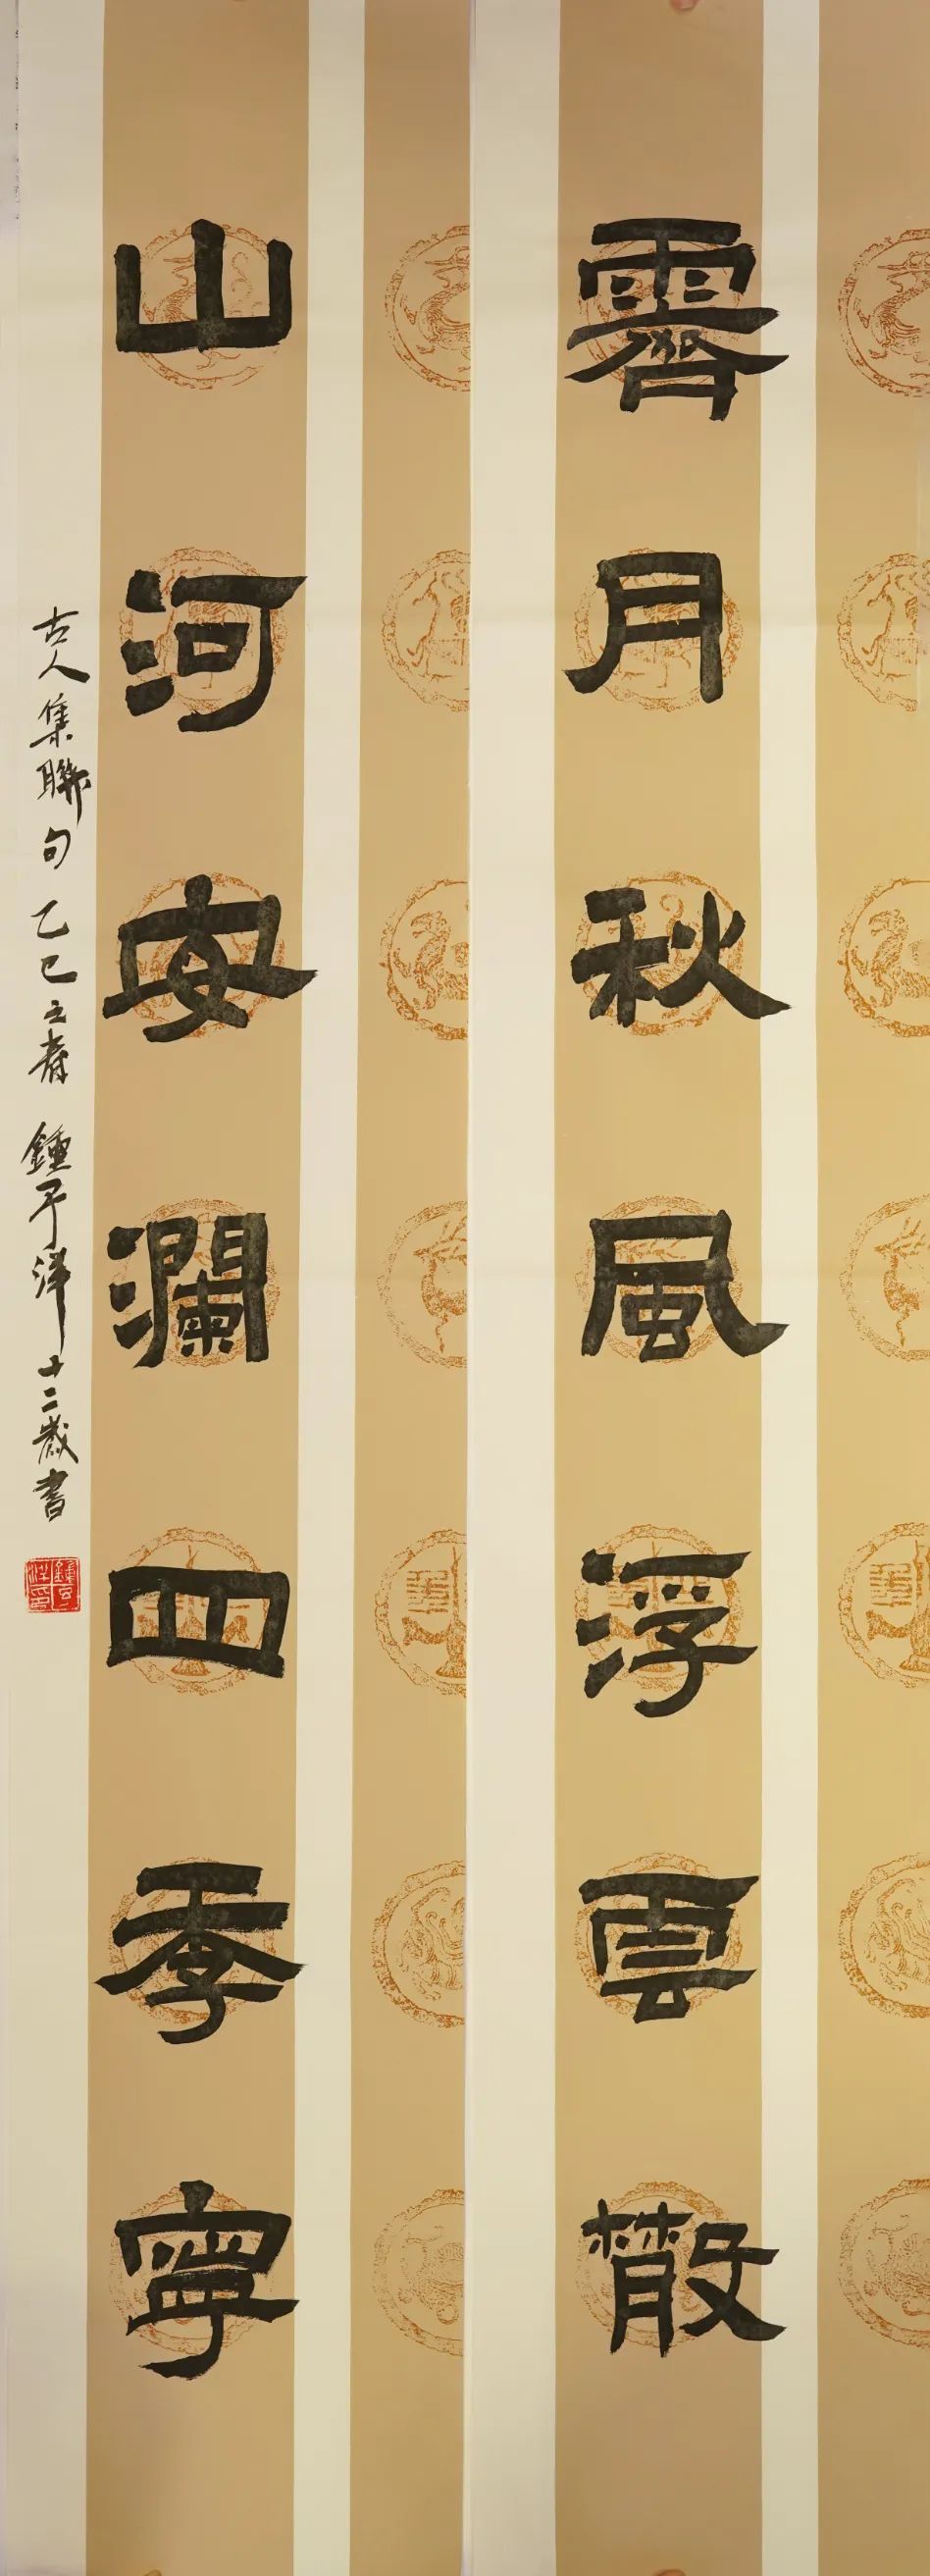 霽月秋風浮雲散
山河安瀾四季寧
古人集聯句乙巳之春鍾予洋十二歲書